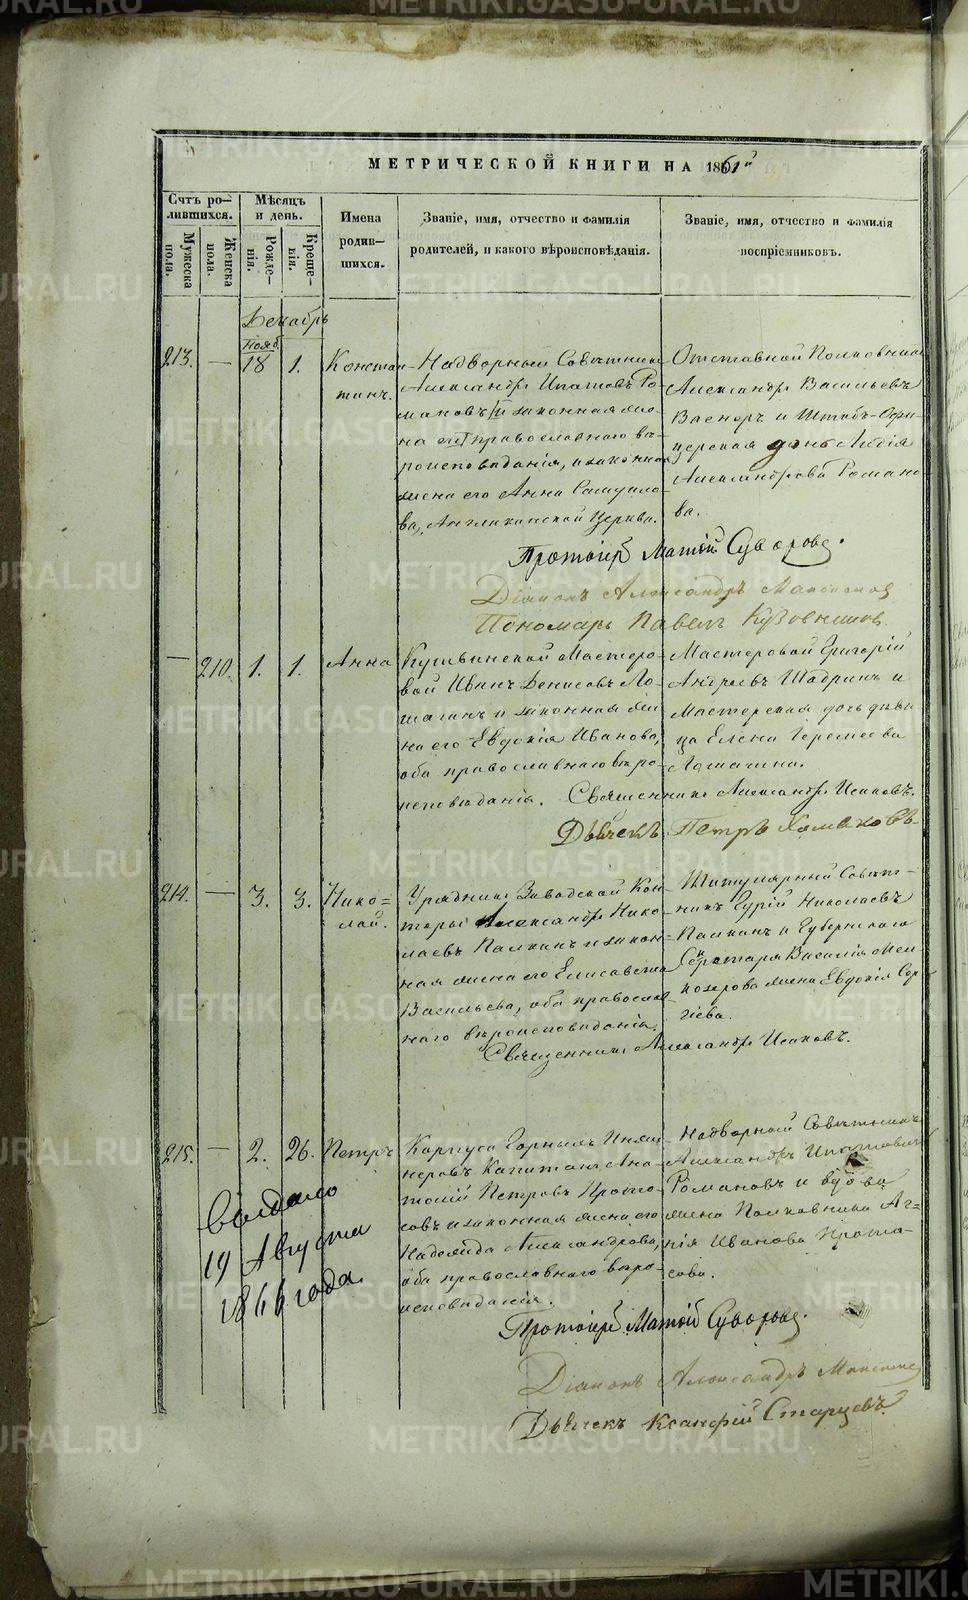 МЕТРИЧЕСКОЙ КНИГИ НА 1861й
Счтъ ро-
лившихся.
Мѣсяцъ
и день.
Имена
родив-
шихся.
Званіе, имя, отчество и фамилія
родителей, и какого вѣроисповѣданія.
Званіе, имя, отчество и фамилія
воспріемниковъ.
Мужеска
пола.
Женска
пола.
Рожде-
нія.
Креще-
нія.
Декабрь
Нояб.
213. — 18 1.
Констан-
тинъ.
Надворный Совѣтникъ
Александръ Ипатовъ Ро-
мановъ
православнаго вѣ-
роисповѣданія, и законная
жена его Анна Самуило-
ва, Англиканской Церкви.
Отставной Полковникъ
Александръ Васильевъ
Вагнеръ и Штабъ-Офи-
церская дочь Лидія
Александрова Романо-
ва.
Протоіерей Матѳій Суворовъ.
Діаконъ Александръ Максимовъ
Пономарь Павелъ Кузовниковъ
— 210. 1. 1. Анна
Кушвинской Мастеро-
вой Иванъ Денисовъ Ло-
магинъ и законная же-
на его Евдокія Иванова,
оба православнаго вѣро-
исповѣданія.
Мастеровой Григорій
Андреевъ Шадринъ и
Мастерская дочь дѣви-
ца Елена Еремеева
Ломагина.
Священникъ Александръ Исаковъ.
Дьячекъ Петръ Хомяковъ
214. — 3. 3. Нико-
лай.
Урядникъ Заводской Кон-
торы Александръ Нико-
лаевъ Палкинъ и закон-
ная жена его Елисавета
Васильева, оба православ-
наго вѣроисповѣданія.
Титулярный Совѣт-
никъ Гурій Николаевъ
Палкинъ и Губернскаго
Секретаря Василія
жена Евдокія Сер-
гіева.
Священникъ Александръ Исаковъ.
215. — 2. 26. Петръ
Корпуса Горныхъ Инже-
неровъ Капитанъ Ана-
толій Петровъ Прота-
совъ и законная жена его
Надежда Александрова,
оба православнаго вѣро-
исповѣданія.
Надворной Совѣтникъ
Александръ Ипатовичъ
Романовъ и вдова
жена Полковника Аг-
нія Иванова Прота-
сова.
Выдано
19 Августа
1866 года
Протоіерей Матѳій Суворовъ.
Діаконъ Александръ Максимовъ
Дьячекъ Ксанфій Старцевъ
METRIKI.GASO-URAL.RU